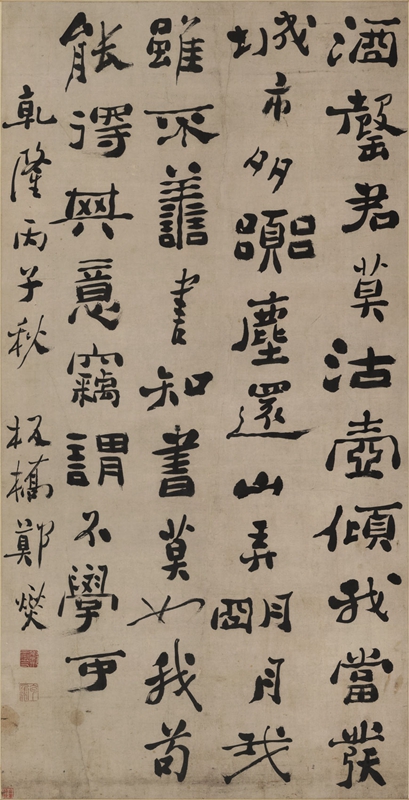 酒罄君莫沽壺傾我當發
城市多囂塵還山弄朙月我
雖不譱書知書莫如我苟
能得其意竊謂不學可
乾隆丙子秋板橋鄭燮